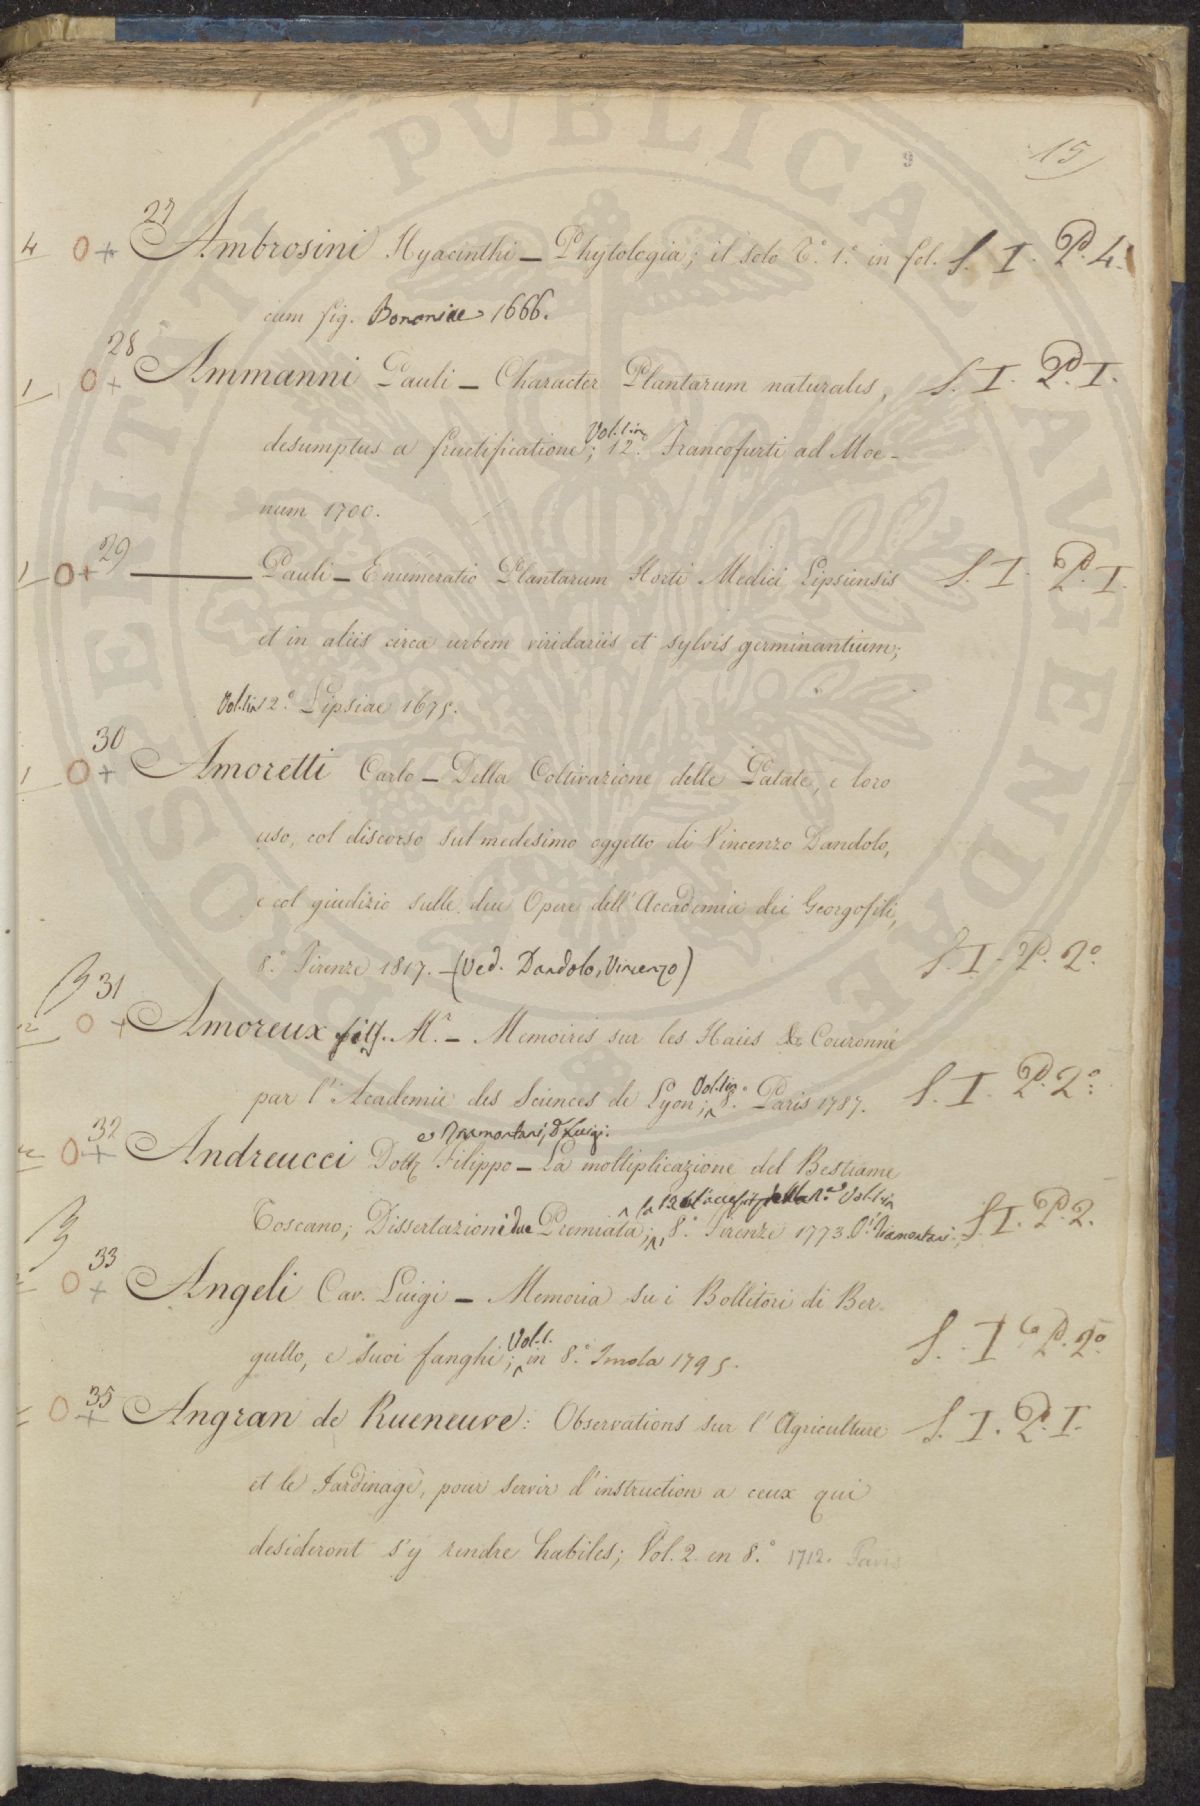 9
15
27
4 O + Ambrosini Hyacinthi — Phytologia; il solo T.° 1.° in fol. S. I. P. 4.
cum fig. Bononiae 1666.
28
1 O + Ammanni Pauli — Character Plantarum naturalis, S. I. P. I.
Vol. 1 in
desumptus a fructificatione; 12.° Francofurti ad Moe-
num 1700.
29
1 O + ——— Pauli — Enumeratio Plantarum Horti Medici Lipsiensis S. I. P. I.
et in aliis circa urbem viridariis et sylvis germinantium;
Vol. 1 in 12.° Lipsiae 1675.
30
1 O + Amoretti Carlo — Della Coltivazione delle Patate, e loro
uso, col discorso sul medesimo oggetto di Vincenzo Dandolo,
e col giudizio sulle due Opere dell'Accademia dei Georgofili,
8.° Firenze 1817. — (Ved. Dandolo, Vincenzo) S. I. P. 2.°
31
O + Amoreux M.r — Memoires sur les Haies & Couronné
Vol. 1 in
par l'Academie des Sciences de Lyon; 8.° Paris 1787. S. I. P. 2.°
32
e Tramontani, D. Luigi.
O + Andreucci Dott. Filippo — La moltiplicazione del Bestiame
Vol. 1 in
Toscano; Dissertazioni due Premiata; 8.° Firenze 1773. Tramontani. S. I. P. 2.
33
O + Angeli Cav. Luigi — Memoria su i Bollitori di Ber-
Vol. 1.
gullo, e suoi fanghi; in 8.° Imola 1795. S. I. P. 2.°
35
O + Angran de Rueneuve: Observations sur l'Agriculture S. I. P. I.
et le Jardinage, pour servir d'instruction a ceux qui
desideront s'y rendre habiles; Vol. 2. en 8.° 1712. Paris